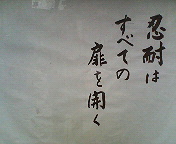 忍耐は
すべての
扉を開く